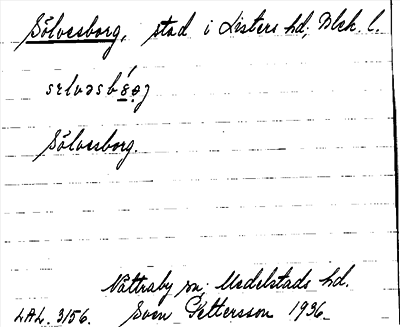 Sölvesborg, stad i Listers hd, Blek. l.
Sölvesborg.
Nättraby sn, Medelstads hd.
LAL. 3156. Sven Pettersson 1936